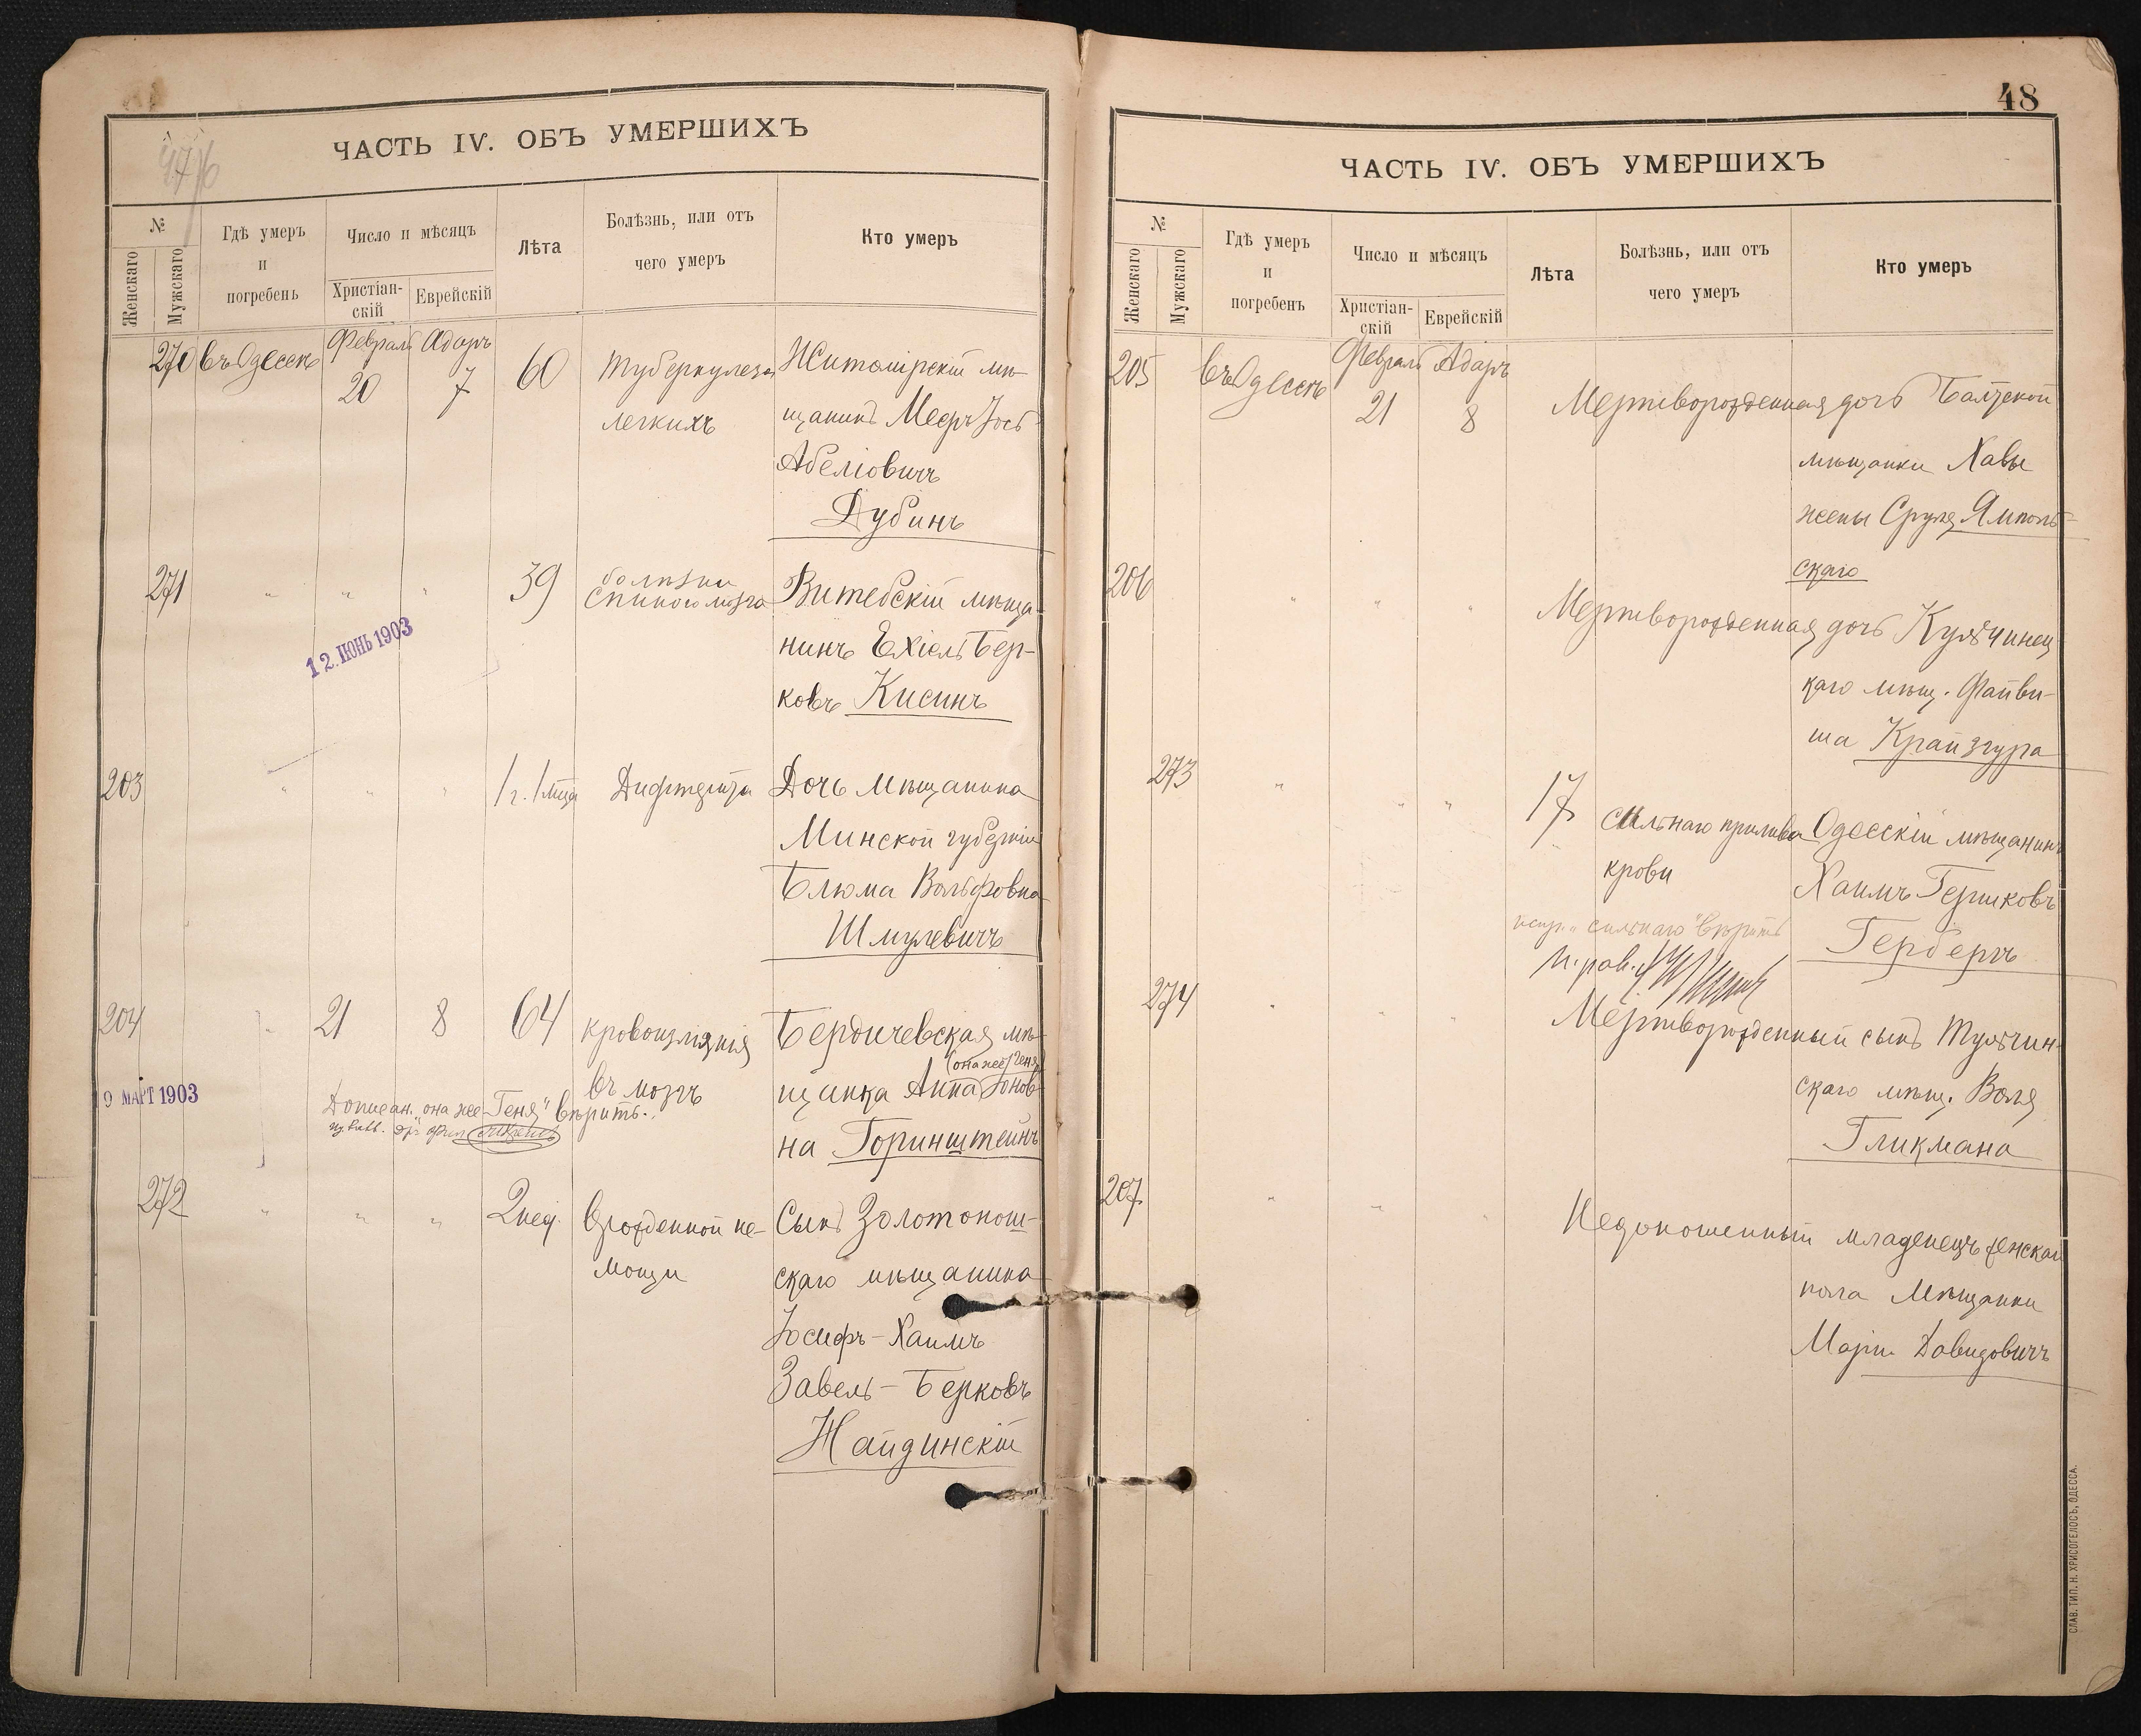 ЧАСТЬ IV. ОБЪ УМЕРШИХЪ
№
Женскаго
Мужскаго
Гдѣ умеръ
и
погребенъ
Число и мѣсяцъ
Христіан-
скій
Еврейскій
Лѣта
Болѣзнь, или отъ
чего умеръ
Кто умеръ
270 въ Одессѣ Февраль 20 Адаръ 7 60 Туберкулеза Житомірскій мѣ-
легкихъ щанинъ Мееръ Іось
Абеліовичъ
Дубинъ
271 " " " 39 болѣзни
спиного мозга Витебскій мѣща-
12. ІЮНЬ 1903
нинъ Ехіель Бер-
ковъ Кисинъ
203 " " " 1 г. 1 мца Дифтерита Дочь мѣщанина
Минской губерніи
Блюма Вольфовна
Шмулевичъ
204 " 21 8 64 кровоизліянія Бердичевская мѣ-
(она же Геня)
въ мозгъ щанка Анна Іонов-
9 МАРТ 1903
Дописан. „она же Геня" вѣрить.
на Горинштейнъ
272 " " " 2 нед. Врожденной не- Сынъ Золотонош-
мощи скаго мѣщанина
Іосифъ-Хаимъ
Завель-Берковъ
Найдинскій
48
ЧАСТЬ IV. ОБЪ УМЕРШИХЪ
№
Женскаго
Мужскаго
Гдѣ умеръ
и
погребенъ
Число и мѣсяцъ
Христіан-
скій
Еврейскій
Лѣта
Болѣзнь, или отъ
чего умеръ
Кто умеръ
205 въ Одессѣ Февраль 21 Адаръ 8 Мертворожденная дочь Балтской
мѣщанки Хавы
жены Сруля Ямполь-
скаго
206 " " " Мертворожденная дочь Кульчинец
каго мѣщ. Файви-
ша Крайзгура
273 " " " 17 сильнаго прилива Одесскій мѣщанинъ
крови Хаимъ Гершковъ
испр. „сильнаго" вѣрить
Герберъ
И. рав.
274 " " " Мертворожденный сынъ Тульчин-
скаго мѣщ. Воля
Гликмана
207 " " " Недоношенный младенецъ женскаго
пола мѣщанки
Маріи Давидовичъ
СЛАВ. ТИП. Н. ХРИСОГЕЛОСЪ, ОДЕССА.